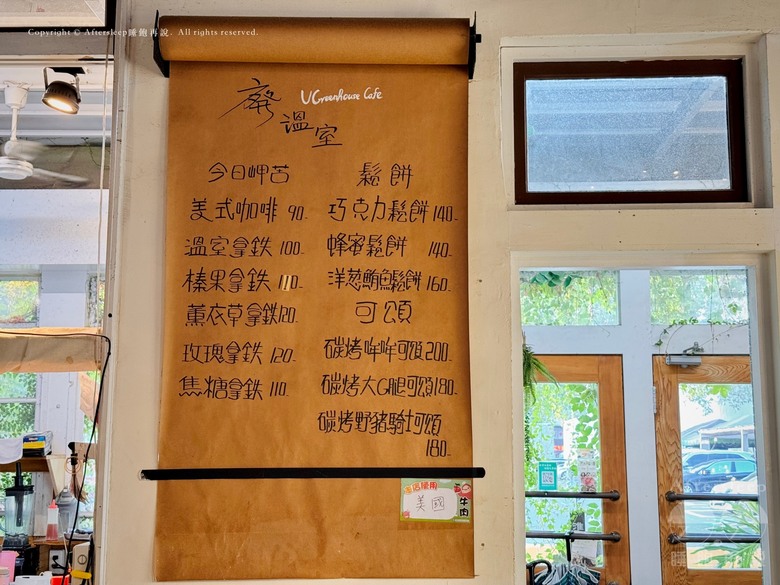 Copyright © Aftersleep睡飽再說. All rights reserved.
廢溫室 UGreenhouse Cafe
今日呷苦
美式咖啡 90.-
溫室拿鉄 100.-
榛果拿鉄 110.-
薰衣草拿鉄 120.-
玫瑰拿鉄 120.-
焦糖拿鉄 110.-
鬆餅
巧克力鬆餅 140.-
蜂蜜鬆餅 140.-
洋葱鮪魚鬆餅 160.-
可頌
碳烤哞哞可頌 200.-
碳烤大G腿可頌 180.-
碳烤野豬騎士可頌
180.-
本店使用
美國
牛肉